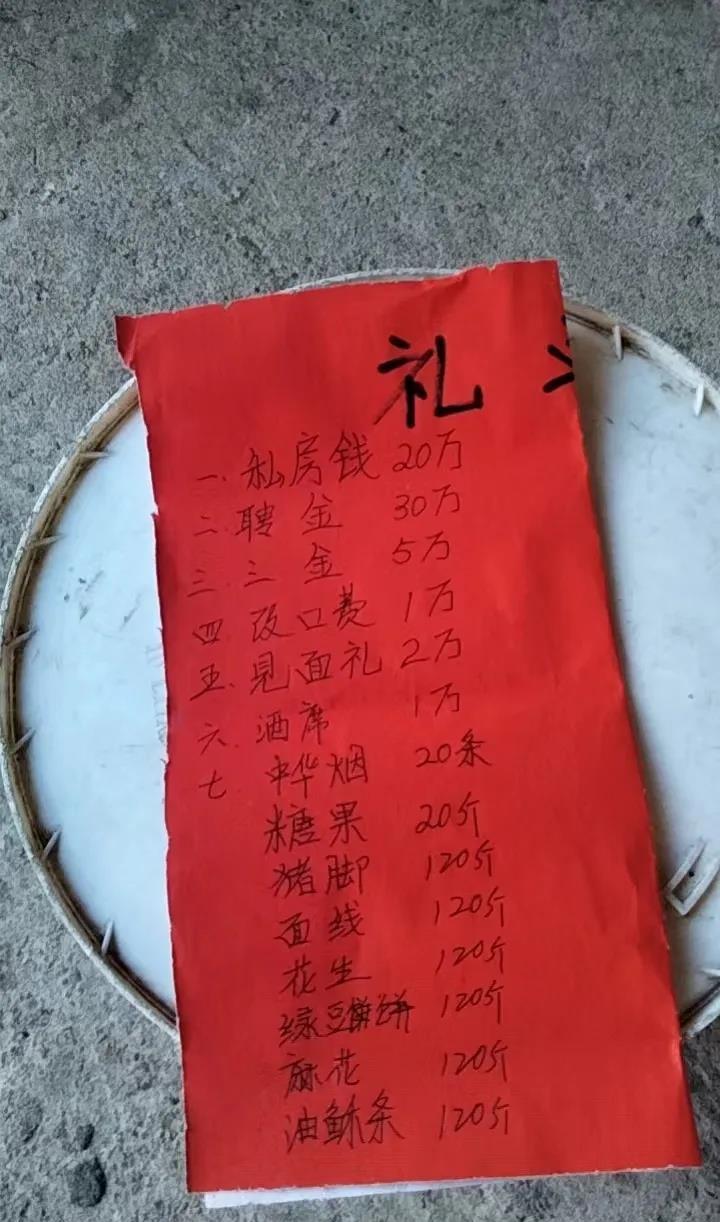 礼
一、私房钱 20万
二、聘金 30万
三、三金 5万
四 改口费 1万
五、见面礼 2万
六、酒席 1万
七 中华烟 20条
糖果 20斤
猪脚 120斤
面线 120斤
花生 120斤
绿豆饼 120斤
麻花 120斤
油稣条 120斤